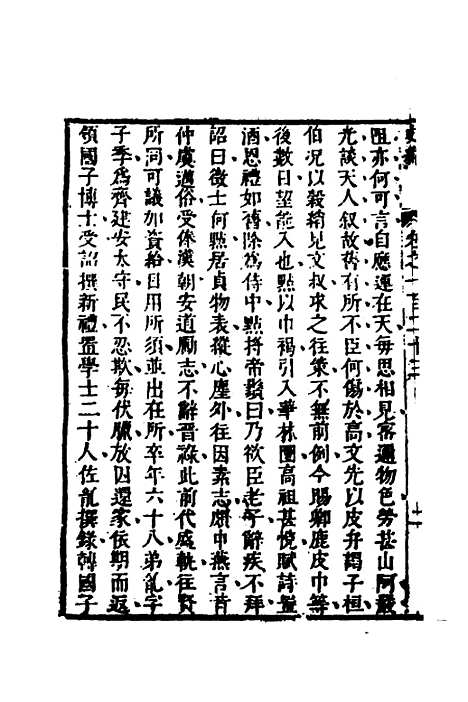 阻亦何可言自應運在天每思相見密邇物色勞甚山阿嚴
光談天人叙故舊有所不臣何傷於高文先以皮弁謁子桓
伯況以縠綃見文叔求之往策不無前例今賜卿鹿皮巾等
後數日望能入也點以巾褐引入華林園高祖甚悅賦詩置
酒恩禮如舊除為侍中點捋帝鬚曰乃欲臣老子辭疾不拜
詔曰徵士何點居貞物表縱心塵外往因素志頗申燕言昔
仲虞邁俗受俸漢朝安道勵志不辭晉祿此前代盛軌往賢
所同可議加資給日用所須並出在所卒年六十八弟亂字
子季為齊建安太守民不忍欺每伏臘放囚還家依期而返
領國子博士受詔撰新禮置學士二十人佐亂撰錄轉國子